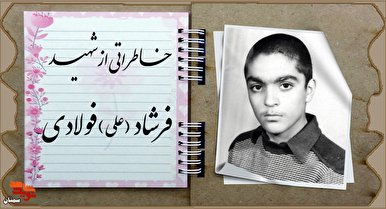 خاطراتی از شهید
فرشاد (علی) فولادی
سمنان